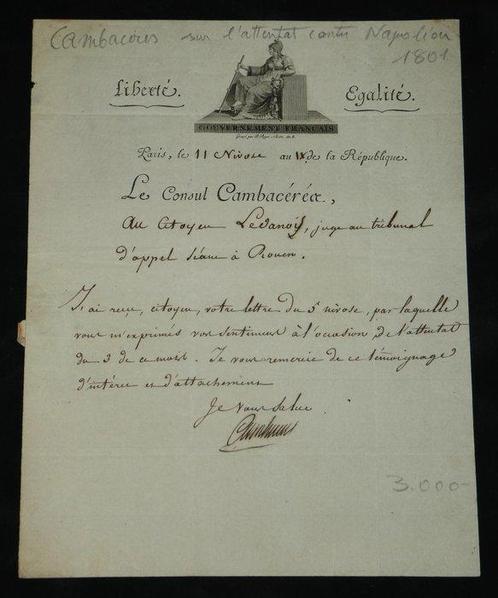 Cambacérès sur l'attentat contre Napoléon
1801
Liberté. Egalité.
GOUVERNEMENT FRANÇAIS
Paris, le 11 Nivose an IX de la République.
Le Consul Cambacérés,
Au Citoyen Ledanois, juge au tribunal
d'appel séant à Rouen.
J'ai reçu, citoyen, votre lettre du 5 nivose, par laquelle
vous m'exprimés vos sentimens à l'occasion de l'attentat
du 3 de ce mois. Je vous remercie de ce témoignage
d'intérêt et d'attachement
Je vous salue
Cambacérès
3.000-